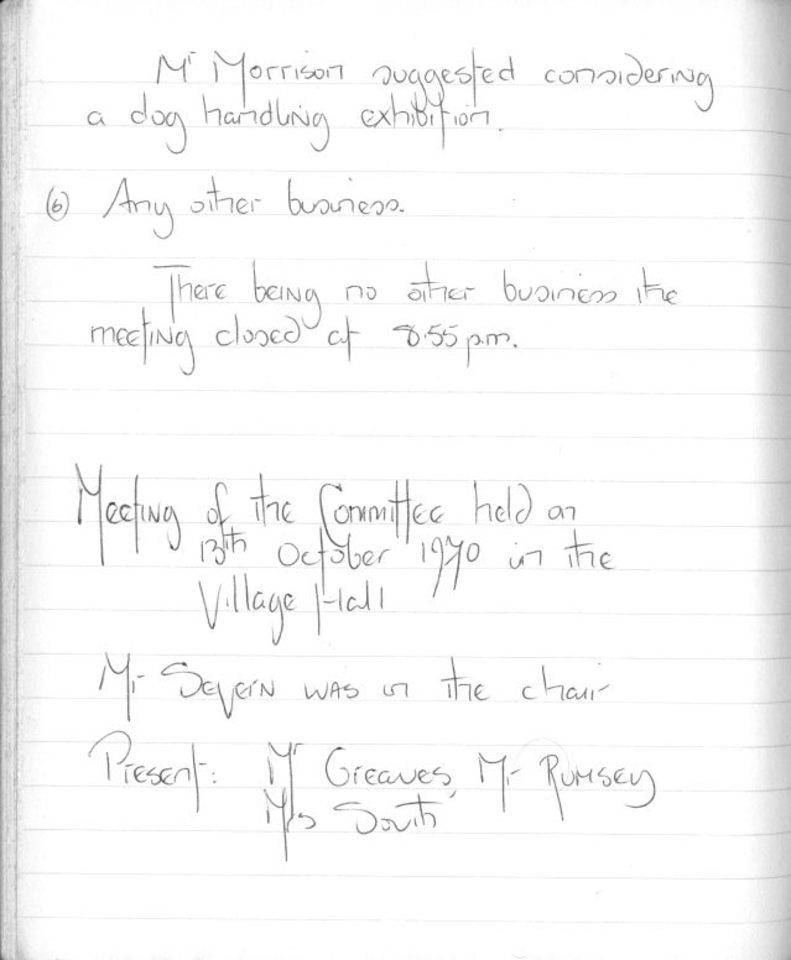 Mr Morrison suggested considering
a dog handling exhibition.
(6) Any other business.
There being no other business the
meeting closed at 8.55 p.m.
Meeting of the Committee held on
13th October 1970 in the
Village Hall
Mr Severn was in the chair
Present: Mr Greaves, Mr Rumsey
Mrs South